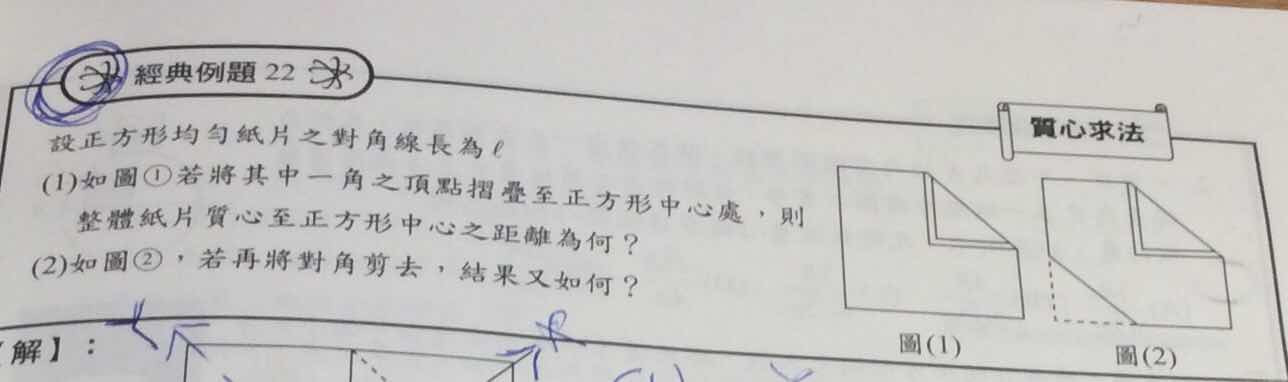 經典例題 22
質心求法
設正方形均勻紙片之對角線長為ℓ
(1)如圖①若將其中一角之頂點摺疊至正方形中心處，則
整體紙片質心至正方形中心之距離為何？
(2)如圖②，若再將對角剪去，結果又如何？
圖(1)
圖(2)
【解】：